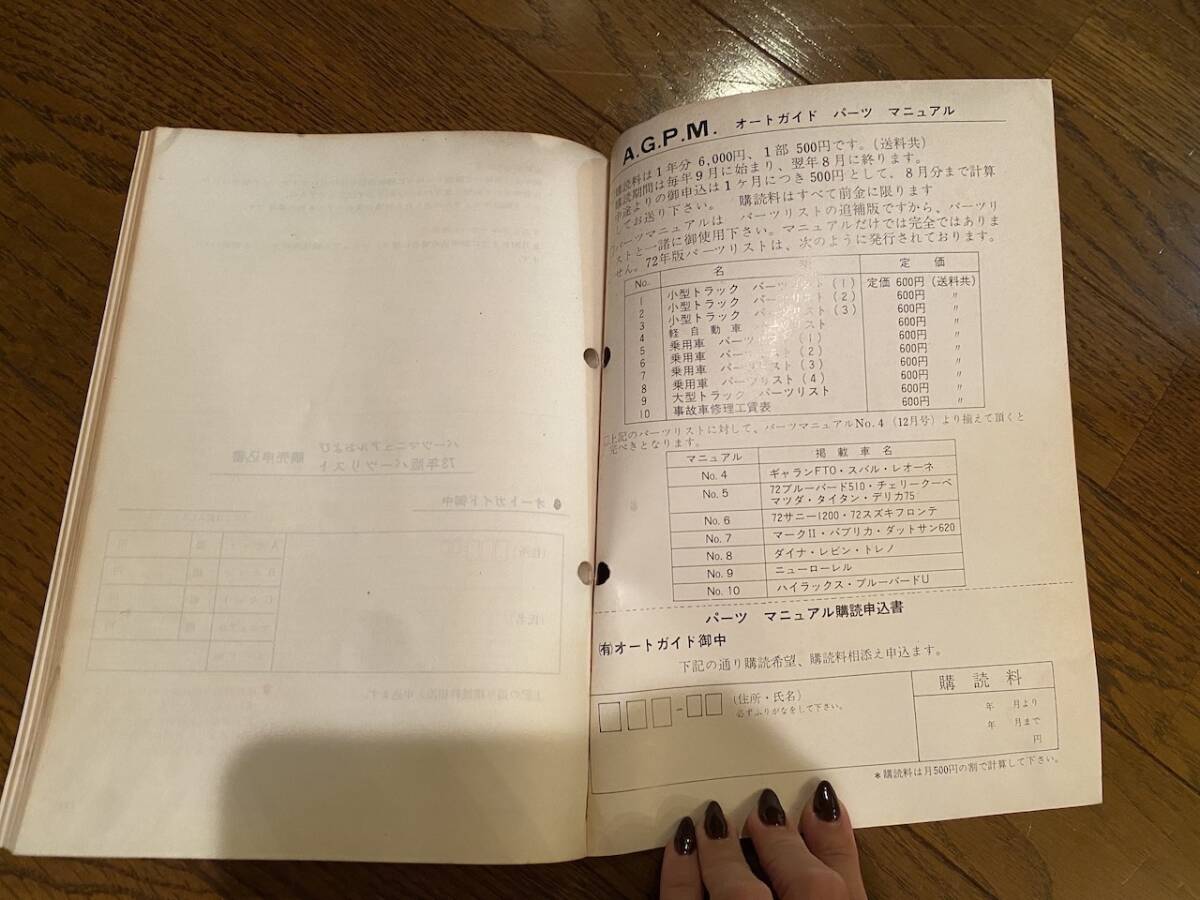 A.G.P.M. オートガイド パーツ マニュアル
購読料は1年分 6,000円、1部 500円です。(送料共)
購読期間は毎年9月に始まり、翌年8月に終ります。
中途よりの御申込は1ケ月につき500円として、8月分まで計算
してお送り下さい。 購読料はすべて前金に限ります
パーツマニュアルは パーツリストの追補版ですから、パーツリ
ストと一諸に御使用下さい。マニュアルだけでは完全ではありま
せん。72年版パーツリストは、次のように発行されております。
No. 名 定価
1 小型トラック パーツリスト (1) 定価 600円 (送料共)
2 小型トラック パーツリスト (2) 600円 〃
3 小型トラック パーツリスト (3) 600円 〃
4 軽自動車 パーツリスト 600円 〃
5 乗用車 パーツリスト (1) 600円 〃
6 乗用車 パーツリスト (2) 600円 〃
7 乗用車 パーツリスト (3) 600円 〃
8 乗用車 パーツリスト (4) 600円 〃
9 大型トラック パーツリスト 600円 〃
10 事故車修理工賃表 600円 〃
上記のパーツリストに対して、パーツマニュアルNo.4 (12月号) より揃えて頂くと
完ぺきとなります。
マニュアル 掲載車名
No.4 ギャランFTO・スバル・レオーネ
No.5 72ブルーバード510・チェリークーペ
マツダ・タイタン・デリカ75
No.6 72サニー1200・72スズキフロンテ
No.7 マークII・パブリカ・ダットサン620
No.8 ダイナ・レビン・トレノ
No.9 ニューローレル
No.10 ハイラックス・ブルーバードU
パーツ マニュアル購読申込書
(有)オートガイド御中
下記の通り購読希望、購読料相添え申込ます。
(住所・氏名)
必ずふりがなをして下さい。
購読料
年 月より
年 月まで
円
*購読料は月500円の割で計算して下さい。